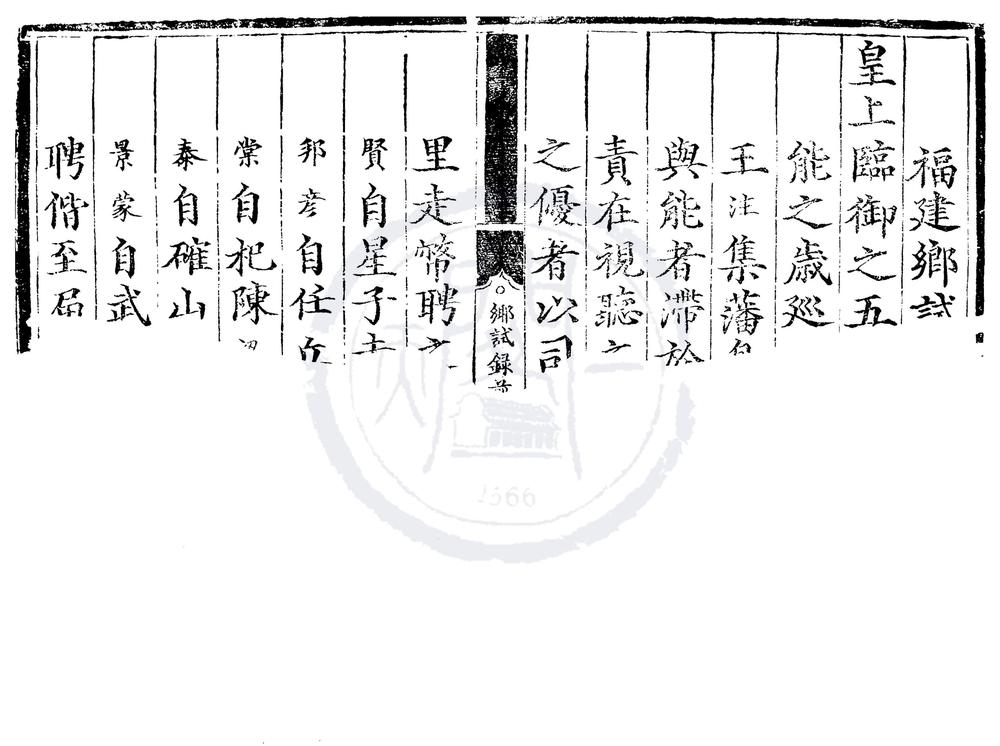 福建鄉試
皇上臨御之五
能之歲巡
王注集藩
與能者滯於
責在視聽
之優者以司
鄉試錄前
里走幣聘
賢自星子
邦彥自任丘
棠自杞陳
泰自確山
景蒙自武
聘偕至屆
1566